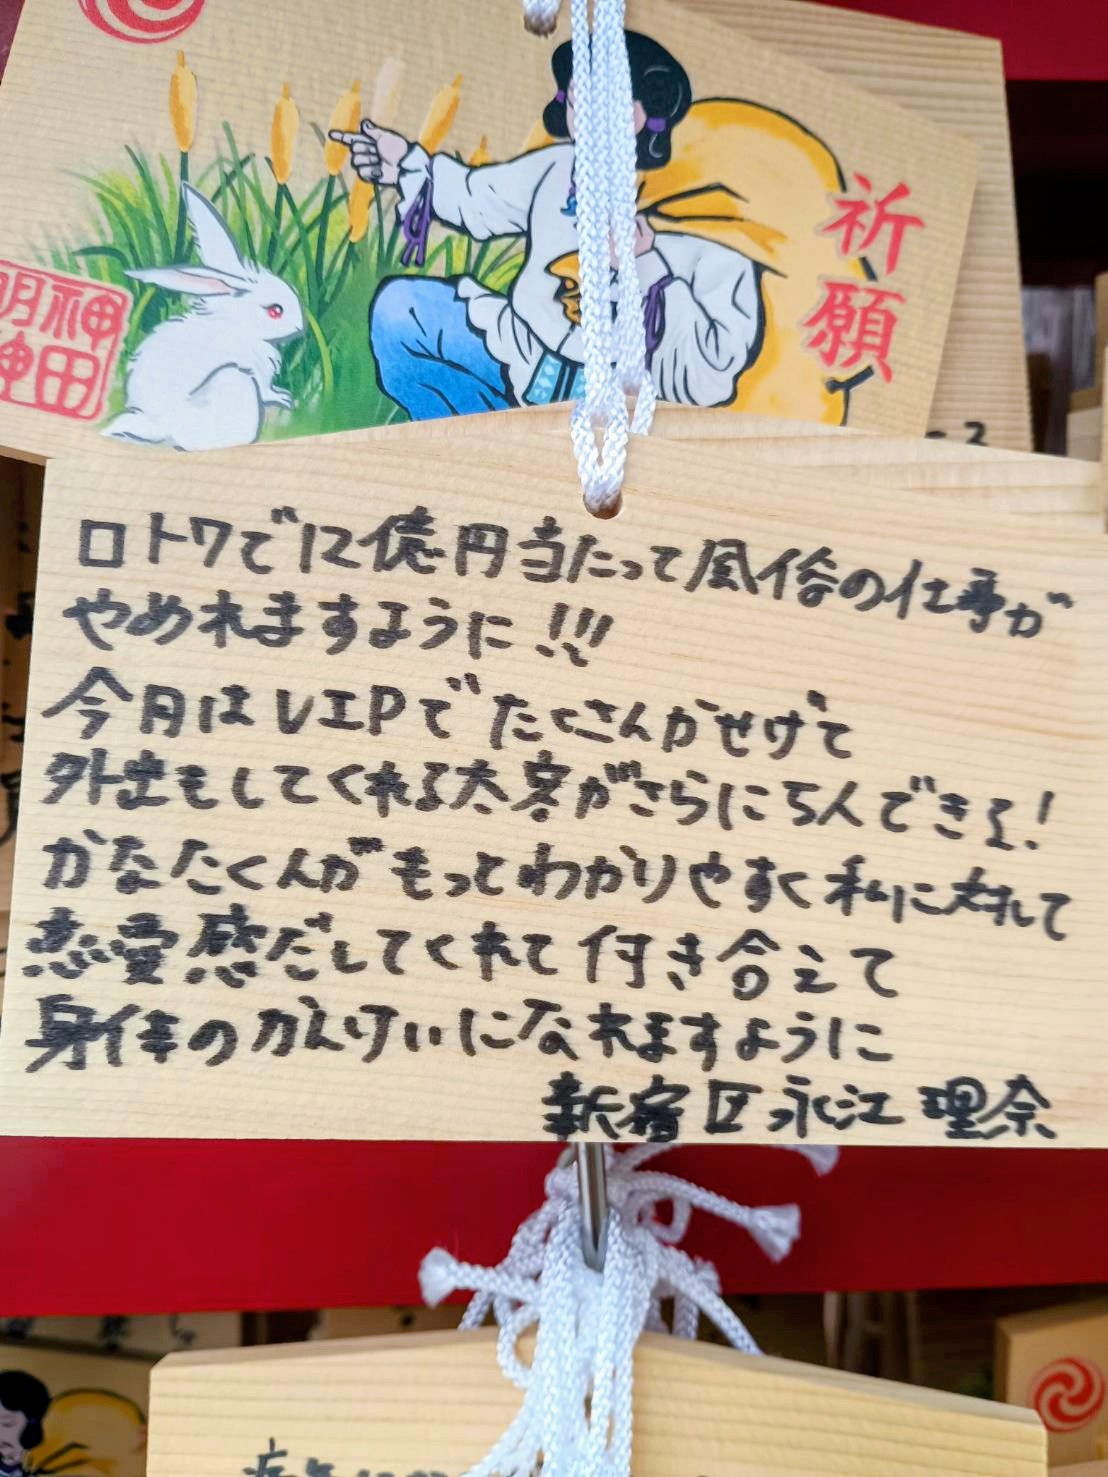 祈願
神田
明神
ロトワで12億円当たって風俗の仕事が
やめれますように!!!
今月はVIPでたくさんかせげて
外出もしてくれる太客がさらに5人できる!
かなたくんがもっとわかりやすく私に対して
恋愛感だしてくれて付き合えて
身体のかんけいになれますように
新宿区永江 理奈